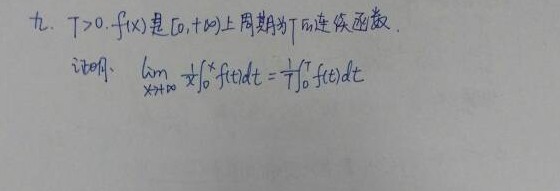 九. T>0. f(x)是[0,+∞)上周期为T的连续函数.
证明. lim x→+∞ 1/x ∫₀ˣ f(t)dt = 1/T ∫₀ᵀ f(t)dt